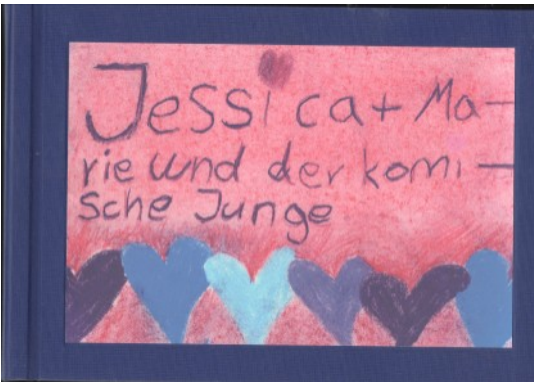 Jessica + Ma-
rie und der komi-
sche Junge